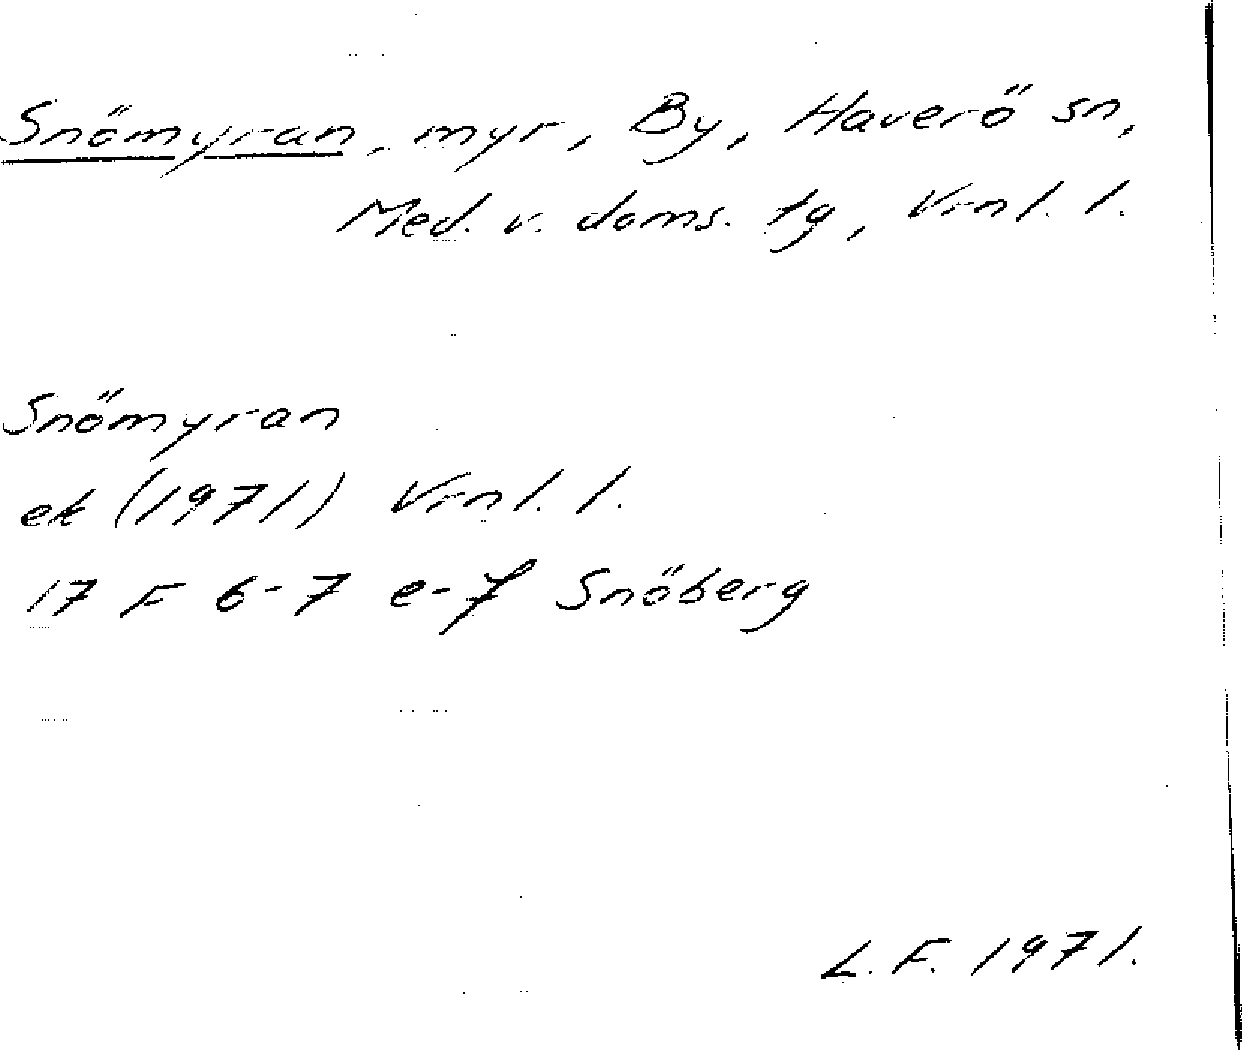 Snömyran, myr, By, Haverö sn,
Med. v. doms. tg, Vrnl. l.
Snömyran
ek (1971) Vrnl. l.
17 F 6-7 e-f Snöberg
L. F. 1971.